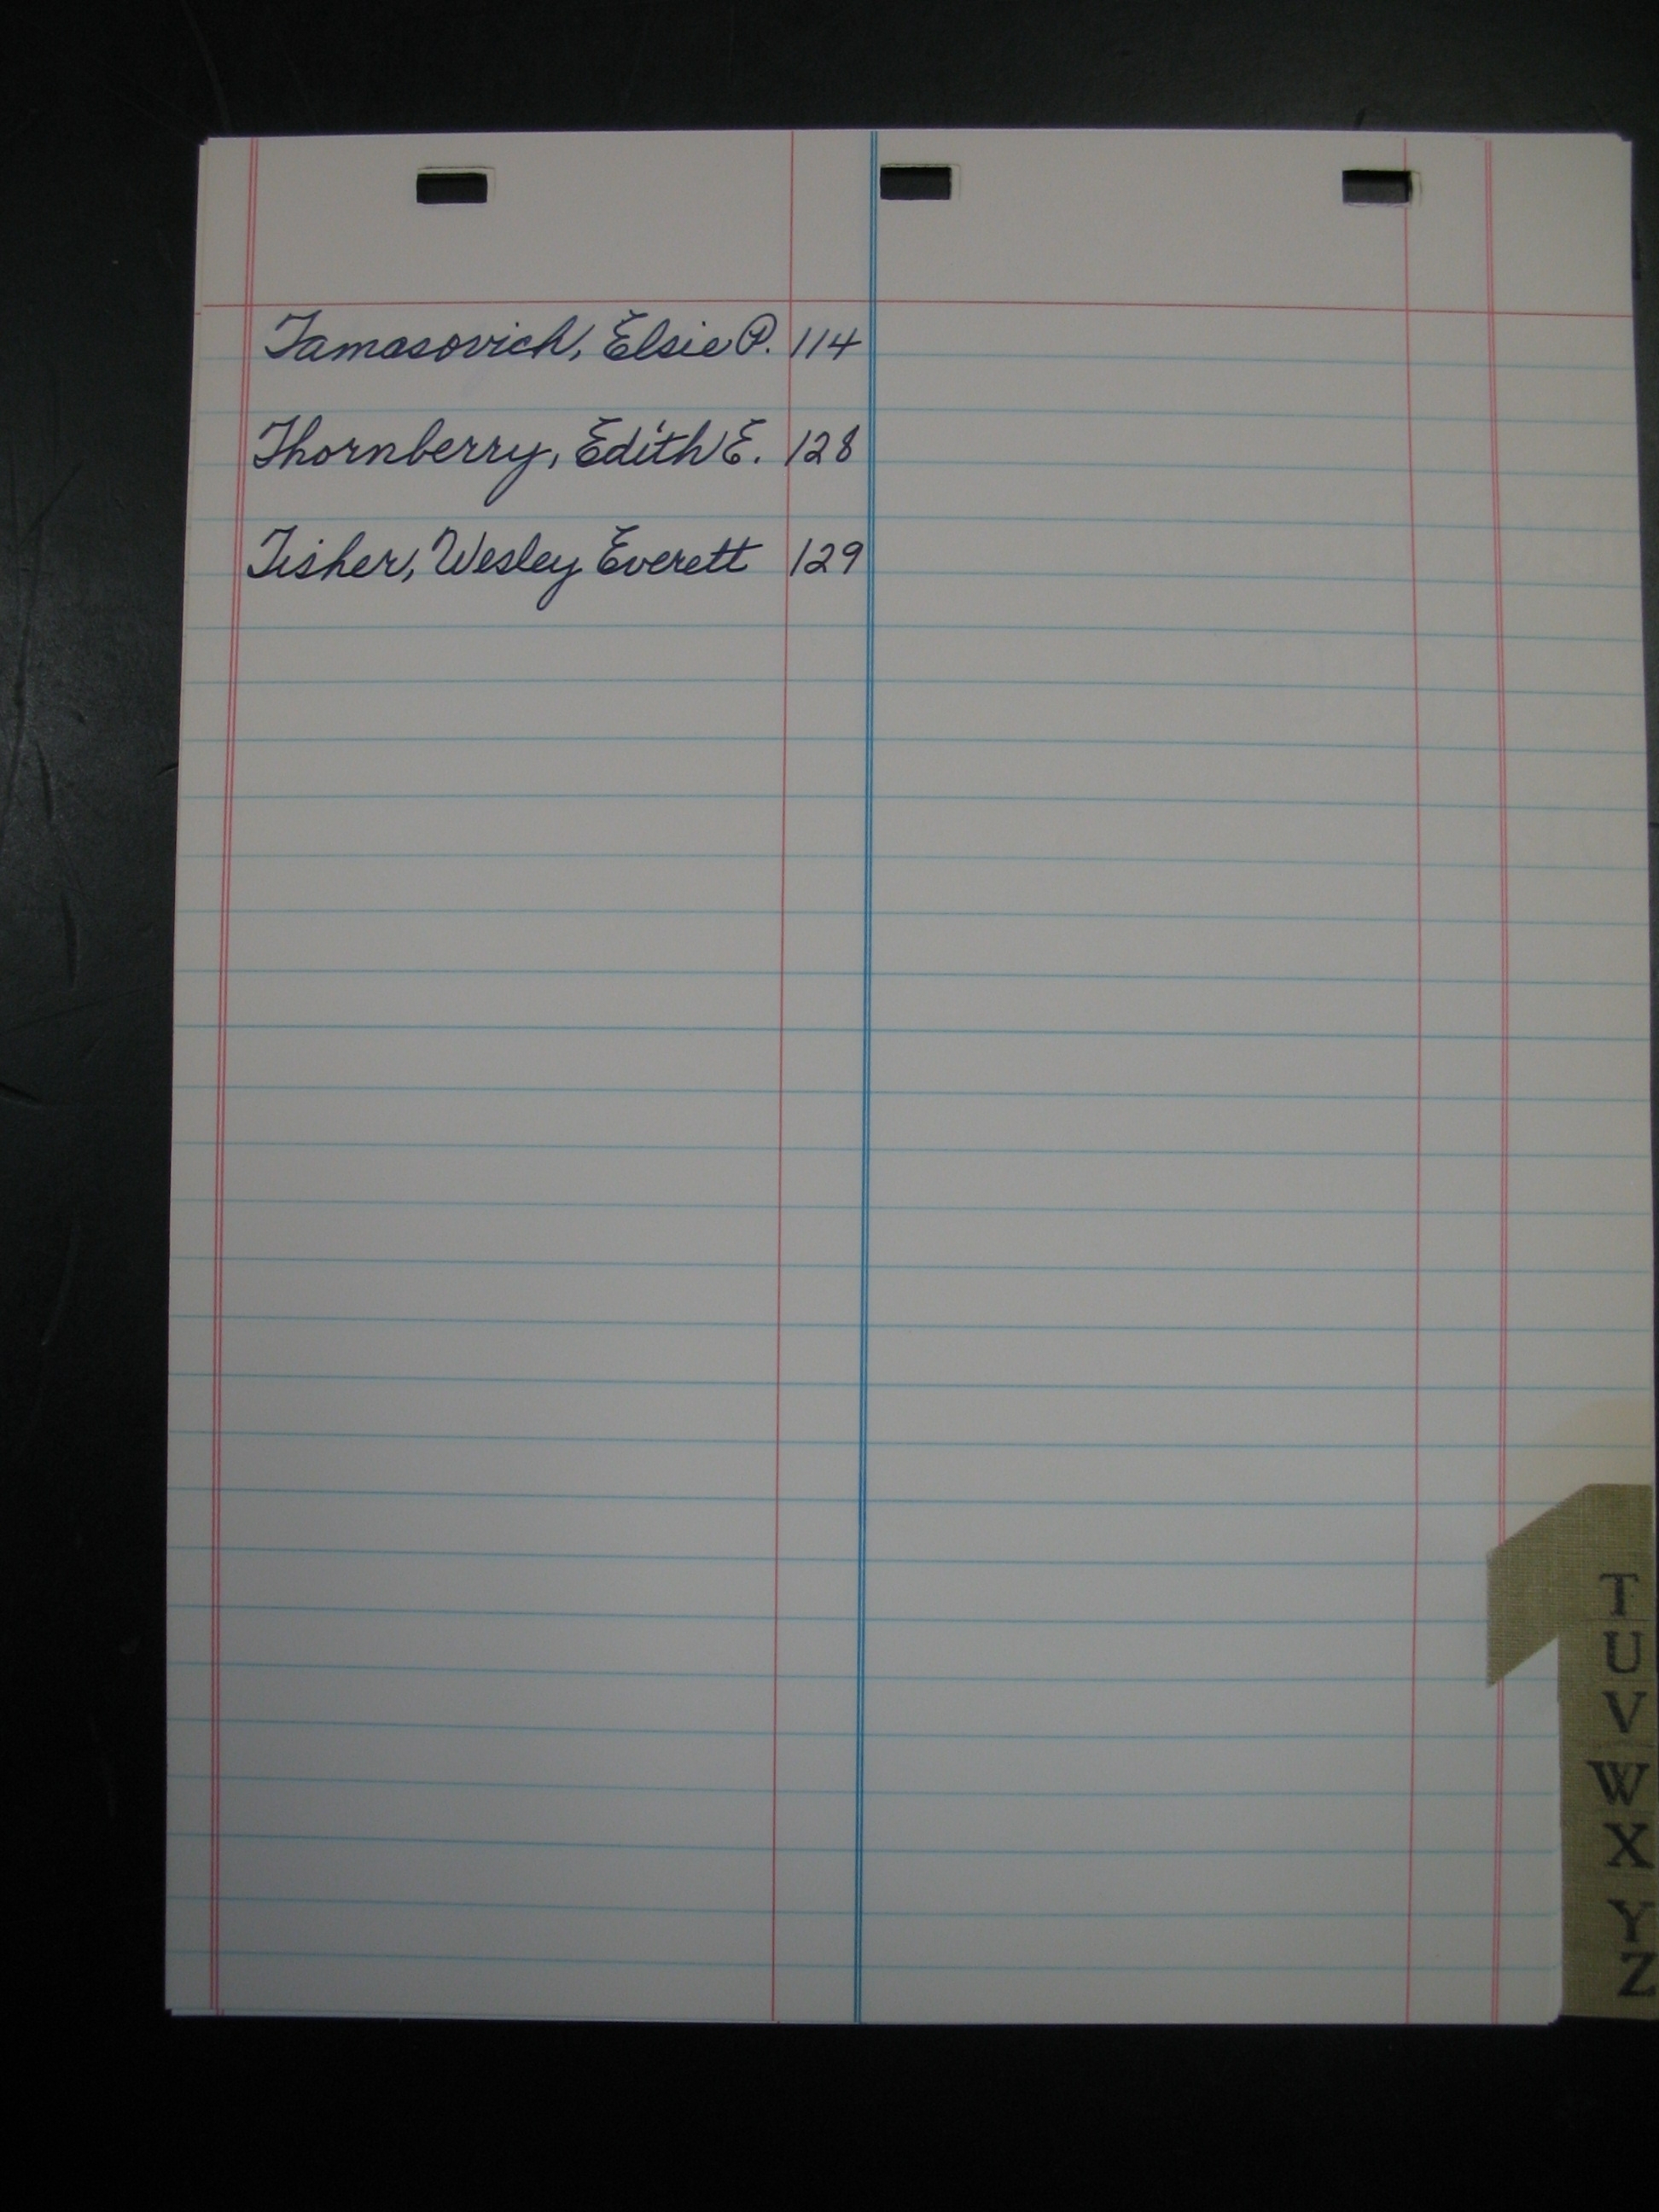 Tamasovich, Elsie P. 114
Thornberry, Edith E. 128
Tisher, Wesley Everett 129
T
U
V
W
X
Y
Z